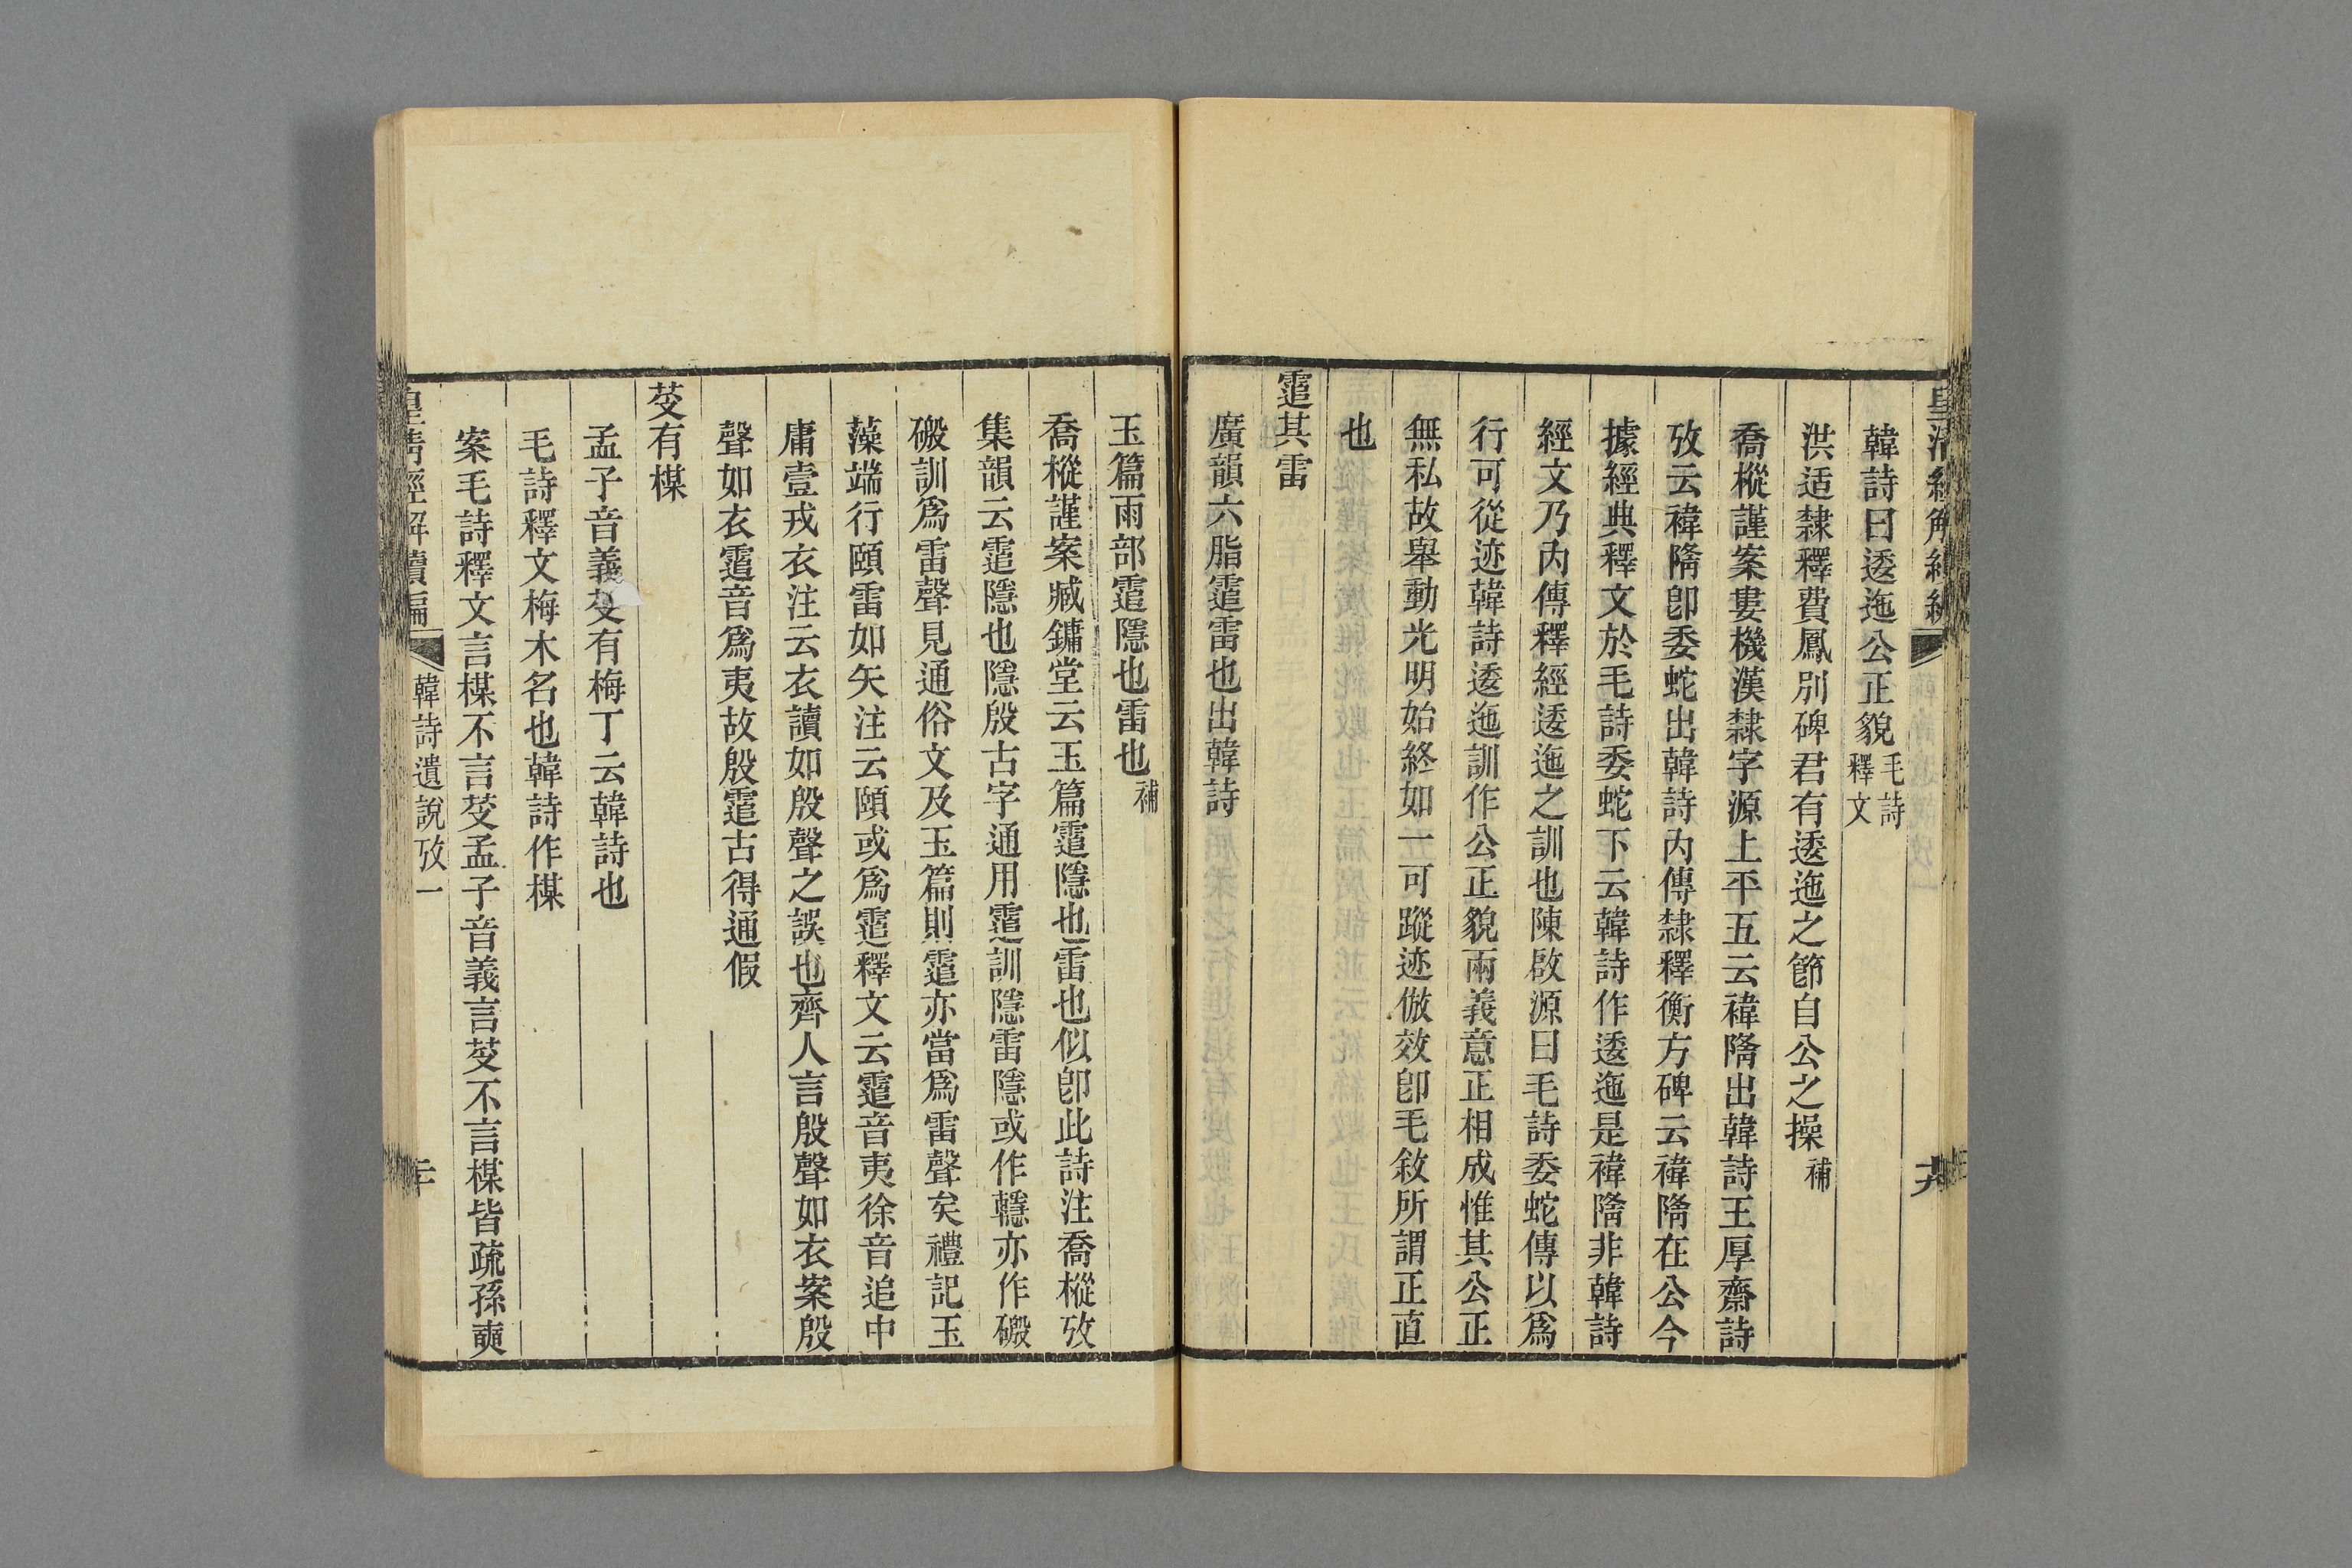 皇清經解續編
韓詩曰逶迤公正貌毛詩釋文
洪适隸釋費鳳別碑君有逶迤之節自公之操補
喬樅謹案婁機漢隸字源上平五云禕隋出韓詩王厚齋詩
攷云禕隋卽委蛇出韓詩內傳隸釋衡方碑云禕隋在公今
據經典釋文於毛詩委蛇下云韓詩作逶迤是禕隋非韓詩
經文乃內傳釋經逶迤之訓也陳啟源曰毛詩委蛇傳以爲
行可從迹韓詩逶迤訓作公正貌兩義意正相成惟其公正
無私故舉動光明始終如一可蹤迹倣效卽毛敘所謂正直
也
霣其雷
廣韻六脂霣雷也出韓詩
玉篇雨部霣隱也雷也補
喬樅謹案臧鏞堂云玉篇霣隱也雷也似卽此詩注喬樅攷
集韻云霣隱也隱殷古字通用霣訓隱雷隱或作轋亦作磤
磤訓爲雷聲見通俗文及玉篇則霣亦當爲雷聲矣禮記玉
藻端行頤霤如矢注云頤或爲霣釋文云霣音夷徐音追中
庸壹戎衣注云衣讀如殷聲之誤也齊人言殷聲如衣案殷
聲如衣霣音爲夷故殷霣古得通假
芟有楳
孟子音義芟有梅丁云韓詩也
毛詩釋文梅木名也韓詩作楳
案毛詩釋文言楳不言芟孟子音義言芟不言楳皆疏孫奭
皇清經解續編 韓詩遺說攷一